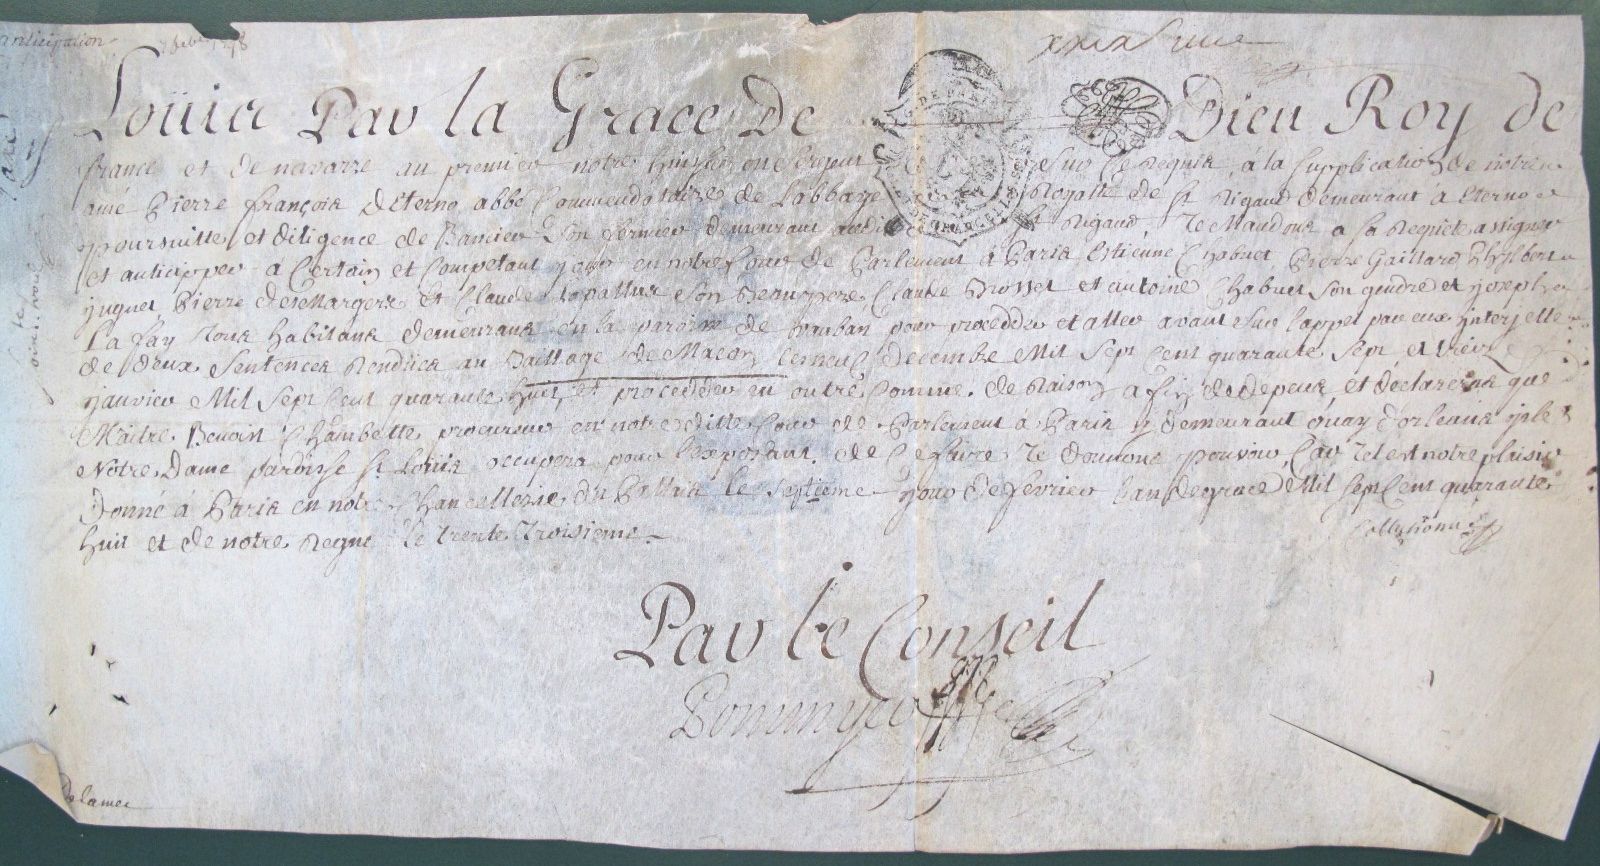 anticipation
Louis Par la Grace De Dieu Roy de
france et de navarre au premier notre huissier ou sergent sur ce requis, à la supplication de notre
amé Pierre françois D'Eterno abbé Commendataire de Labbaye Royalle de St Rigaud demeurant à Eterno
poursuitte et diligence de son fermier demeurant audit St Rigaud, Te Mandons a sa Requete assigner
et anticipper à Certain et Competant jour en notre Cour de Parlement à Paris Estienne Chabuet Pierre Gaillard Phylbert
juguet Pierre desellargers et Claude son Beaupere, Claude Brosset et antoine Chabuet son gendre et joseph
La fay Tous habitans demeurans en la paroisse de pour procedder et aller avant sur lappel par eux interjetté
de deux Sentences Rendües au Bailliage de Macon Le neuf decembre Mil sept Cent quarante Sept et treize
janvier Mil sept Cent quarante huit et procedder en outre Comme de Raison afin de depens, et declarons que
Maitre Benoist Chambette procureur en notre ditte Cour de Parlement à Paris y demeurant quay d'orleans isle
Notre Dame paroisse St Louis occupera pour l'exposant. de Ce faire Te donnons pouvoir, Car Tel est notre plaisir
Donné à Paris en notre Chancellerie du Pallais le septieme jour de fevrier L'an de grace Mil sept Cent quarante
huit et de notre Regne le trente troisieme.
Collationné
Par le Conseil